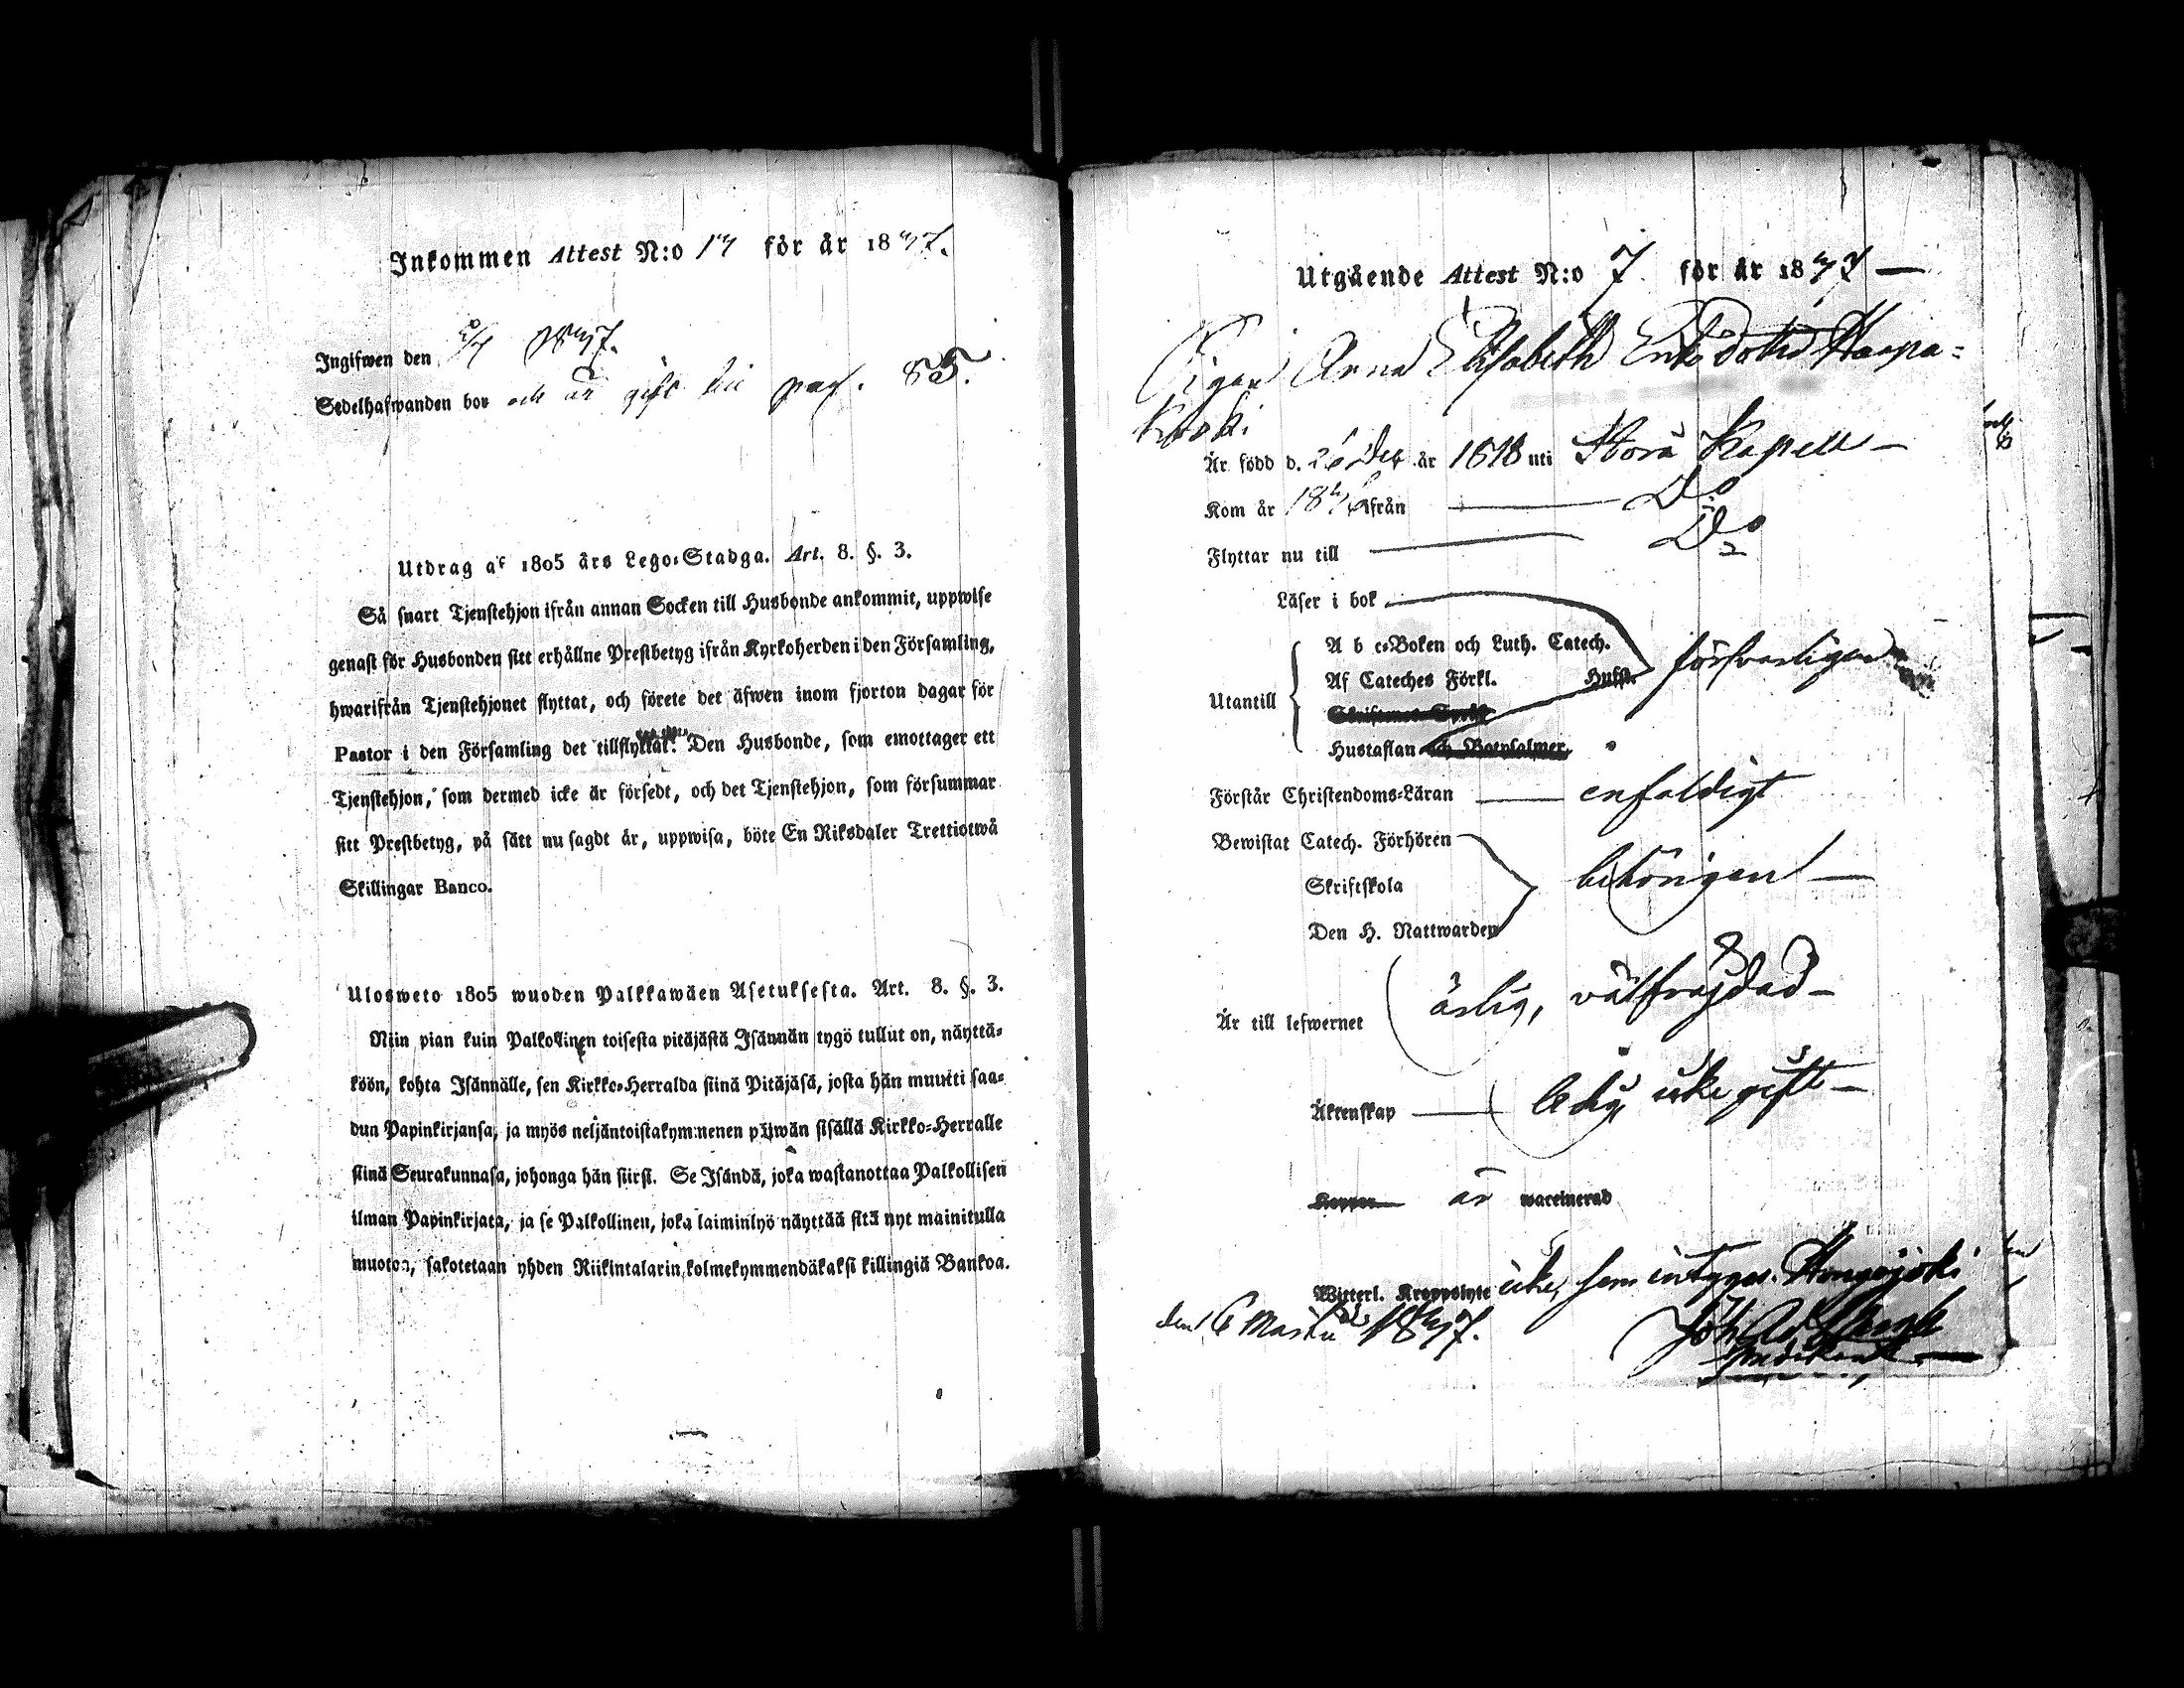 Inkommen Attest N:o 14 för år 1847.
Ingifwen den 2/4 1847.
Sedelhafwanden bor och är gift till pag. 85.
Utdrag af 1805 års Lego-Stadga. Art. 8. §. 3.
Så snart Tjenstehjon ifrån annan Socken till Husbonde ankommit, uppwise
genast för Husbonden sitt erhållne Prestbetyg ifrån Kyrkoherden i den Församling,
hwarifrån Tjenstehjonet flyttat, och förete det äfwen inom fjorton dagar för
Pastor i den Församling det tillflyttat. Den Husbonde, som emottager ett
Tjenstehjon, som dermed icke är försedt, och det Tjenstehjon, som försummar
sitt Prestbetyg, på sätt nu sagdt är, uppwisa, böte En Riksdaler Trettiotwå
Skillingar Banco.
Ulosweto 1805 wuoden Palkkawäen Asetuksesta. Art. 8. §. 3.
Niin pian kuin Palkollinen toisesta pitäjästä Isännän tygö tullut on, näyttä-
köön, kohta Isännälle, sen Kirkko-Herralda siinä Pitäjäsä, josta hän muutti saa-
dun Papinkirjansa, ja myös neljäntoistakymmenen päiwän sisällä Kirkko-Herralle
siinä Seurakunnasa, johonga hän siirsi. Se Isändä, joka wastanottaa Palkollisen
ilman Papinkirjata, ja se Palkollinen, joka laiminlyö näyttää sitä nyt mainitulla
muoton, sakotetaan yhden Riikintalarin kolmekymmendäkaksi killingiä Bankoa.
Utgående Attest N:o 7. för år 1847
Pigan Anna Elisabeth Eriksdotter Haapa=
koski
Är född d. 26 Dec år 1818 uti Storå Kapell
Kom år 1846 ifrån Do
Flyttar nu till Do
Läser i bok
Utantill
A b c-Boken och Luth. Catech.
Af Cateches Förkl. Husst. försvarligen
Skriftenes Språk
Hustaflan och Botpsalmer
Förstår Christendoms-Läran enfaldigt
Bewistat Catech. Förhören
Skriftskola behörigen
Den H. Nattwarden
Är till lefwernet ärlig, välfräjdad
Äktenskap ledig icke gift
Koppor är waccinerad
Witterl. Kroppslyte icke, som intygas. Kongojoki
den 6 Martii 1847. Joh.